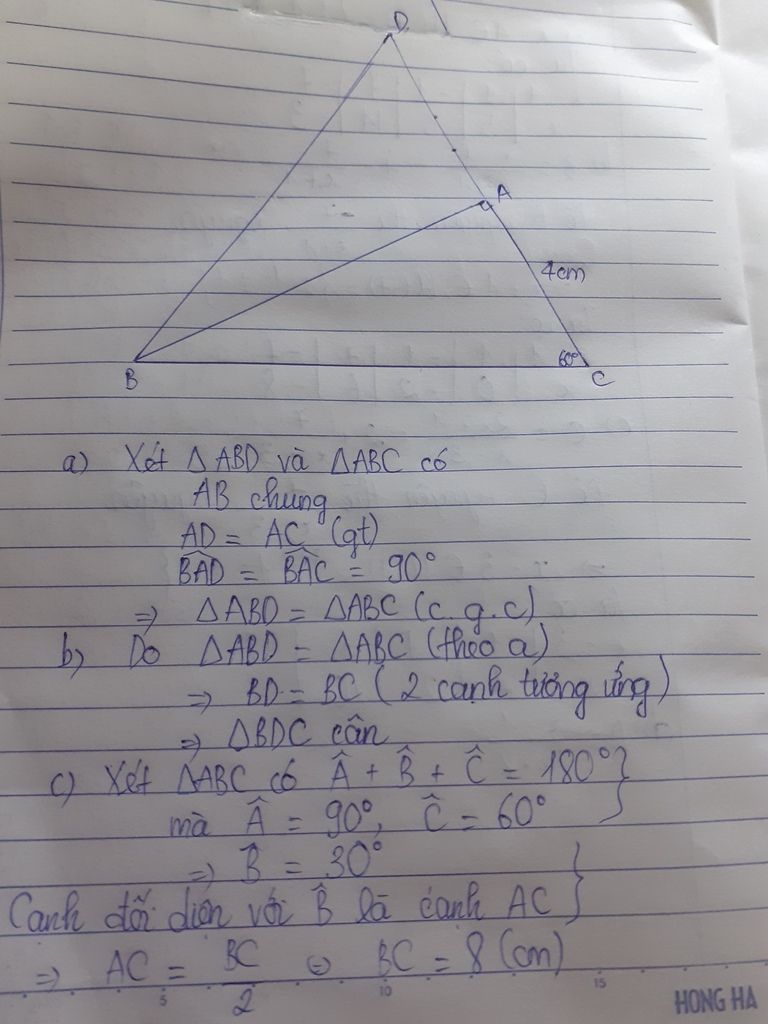 D
A
4cm
60°
B
C
a) Xét ΔABD và ΔABC có
AB chung
AD = AC (gt)
B̂AD = B̂AC = 90°
⇒ ΔABD = ΔABC (c.g.c)
b) Do ΔABD = ΔABC (theo a)
⇒ BD = BC (2 cạnh tương ứng)
⇒ ΔBDC cân
c) Xét ΔABC có Â + B̂ + Ĉ = 180° }
mà Â = 90°, Ĉ = 60°
⇒ B̂ = 30°
Cạnh đối diện với B̂ là cạnh AC }
⇒ AC = BC/2 ⇔ BC = 8 (cm)
5 10 15
HONG HA